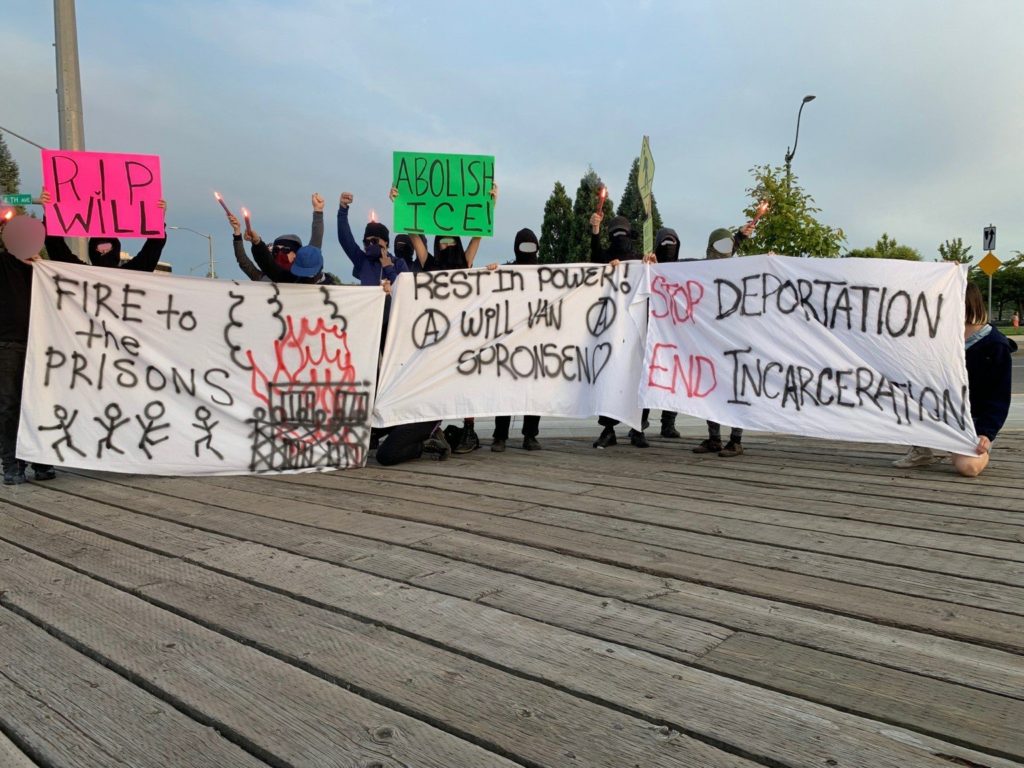 RIP
WILL
ABOLISH
ICE!
TH AVE
FIRE to
the
PRISONS
REST IN POWER!
Ⓐ WILL VAN Ⓐ
SPRONSEN♡
STOP DEPORTATION
END INCARCERATION